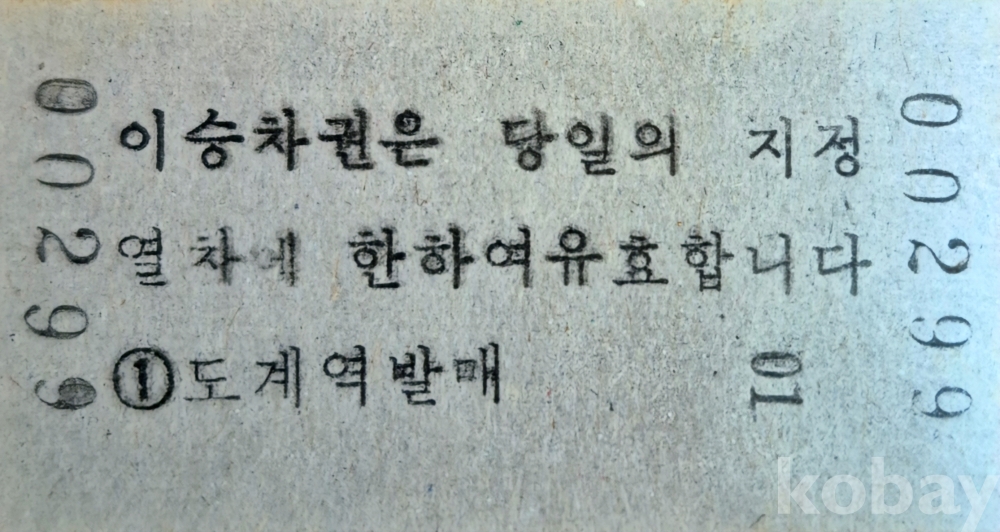 이 승차권은 당일의 지정
열차에 한하여유효합니다
①도계역발매
01
00299
00299
kobay